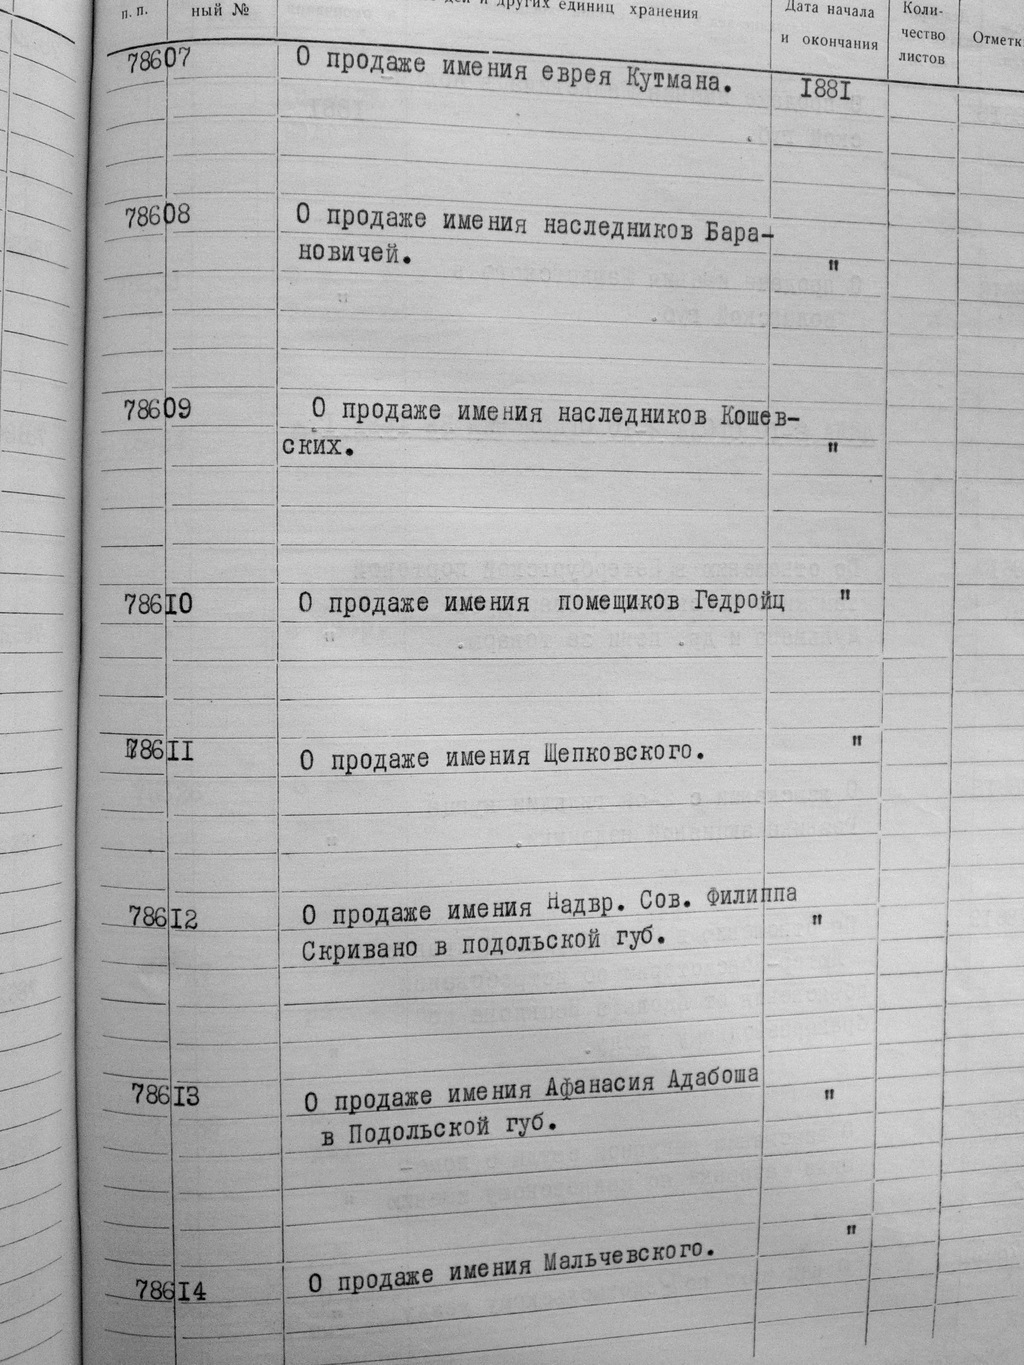 п. п.
ный №
и других единиц хранения
Дата начала
и окончания
Коли-
чество
листов
78607 О продаже имения еврея Кутмана. 1881
78608 О продаже имения наследников Бара-
новичей. "
78609 О продаже имения наследников Кошев-
ских. "
78610 О продаже имения помещиков Гедройц "
78611 О продаже имения Щепковского. "
78612 О продаже имения Надвр. Сов. Филиппа
Скривано в подольской губ. "
78613 О продаже имения Афанасия Адабоша
в Подольской губ. "
78614 О продаже имения Мальчевского. "